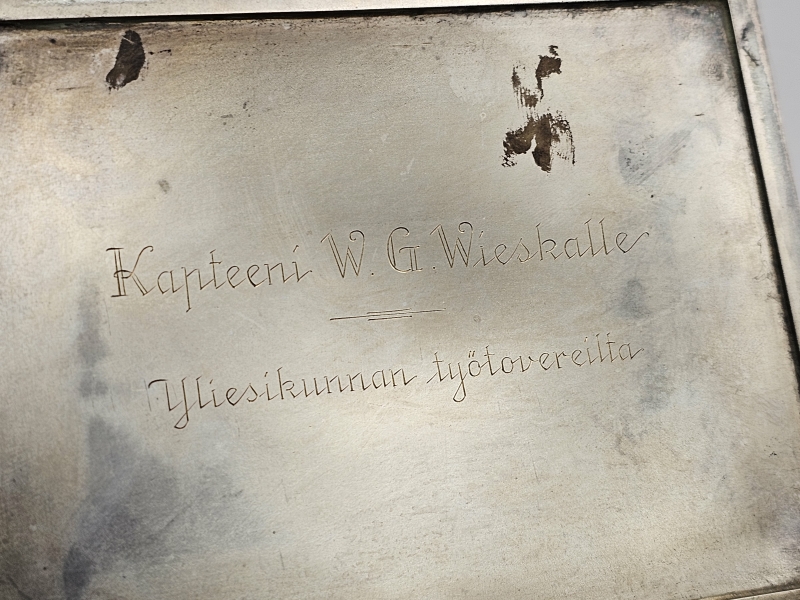 Kapteeni W. G. Wieskalle
Yliesikunnan työtovereilta